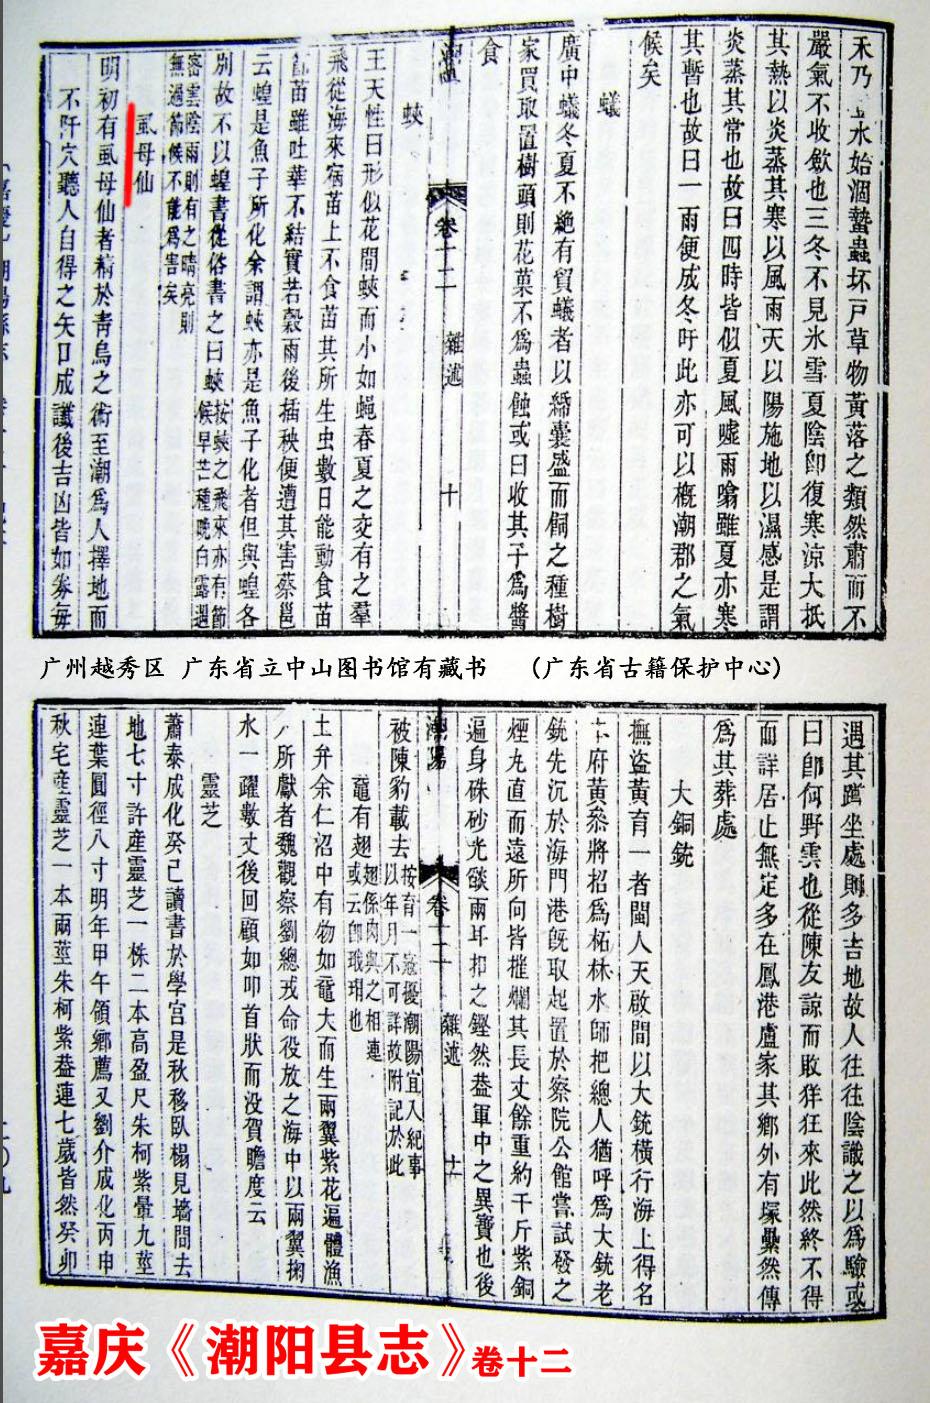 禾乃 水始涸蟄蟲坏戸草物黃落之類然肅而不
嚴氣不收斂也三冬不見氷雪夏陰卽復寒涼大抵
其熱以炎蒸其寒以風雨天以陽施地以濕感是謂
炎蒸其常也故曰四時皆似夏風噓雨噏雖夏亦寒
其暫也故曰一雨便成冬吁此亦可以概潮郡之氣
候矣
蟻
廣中蟻冬夏不絶有貿蟻者以締囊盛而飼之種樹
家買取置樹頭則花菓不爲蟲蝕或曰收其子爲醬
食
卷十二 雜述 十
蛺
王天性曰形似花間蛺而小如蝇春夏之交有之羣
飛從海來 苗上不食苗其所生虫數日能動食苗
苗雖吐華不結實若穀雨後插秧便遭其害蔡邕
云蝗是魚子所化余謂蛺亦是魚子化者但與蝗各
別故不以蝗書從俗書之曰蛺 按蛺之飛來亦有節
候早芒種晚白露遇
密雲陰雨則有之晴亮則
無過節候不能爲害矣
虱母仙
明初有虱母仙者精於靑烏之術至潮爲人擇地而
不阡穴聽人自得之矢口成讖後吉凶皆如劵毎
广州越秀区 广东省立中山图书馆有藏书 （广东省古籍保护中心）
遇其蹲坐處則多吉地故人往往陰識之以爲驗或
曰卽何野雲也從陳友諒而敗佯狂來此然終不得
而詳居止無定多在鳳港盧家其鄕外有塚纍然傳
爲其葬處
大銅銃
撫盜黃育一者閩人天啟間以大銃橫行海上得名
府黃叅將招爲柘林水師把總人猶呼爲大銃老
銃先沉於海門港旣取起置於察院公館嘗試發之
煙丸直而遠所向皆摧爛其長丈餘重約千斤紫銅
遍身硃砂光燄兩耳扣之鏗然葢軍中之異寶也後
潮陽 卷十二 雜述 十一
被陳豹載去 按育一寇擾潮陽宜入紀事
以年月不可詳故附記於此
黿有翅 翅係肉與之相連
或云卽玳瑁也
土弁余仁沼中有物如黿大而生兩翼紫花遍體漁
所獻者魏觀察劉總戎命役放之海中以兩翼掬
水一躍數丈後回顧如叩首狀而没賀瞻度云
靈芝
蕭泰成化癸已讀書於學宫是秋移臥榻見墻間去
地七寸許産靈芝一株二本高盈尺朱柯紫暈九莖
連葉圓徑八寸明年甲午領鄕薦又劉介成化丙申
秋宅産靈芝一本兩莖朱柯紫葢連七歲皆然癸卯
嘉庆《潮阳县志》卷十二